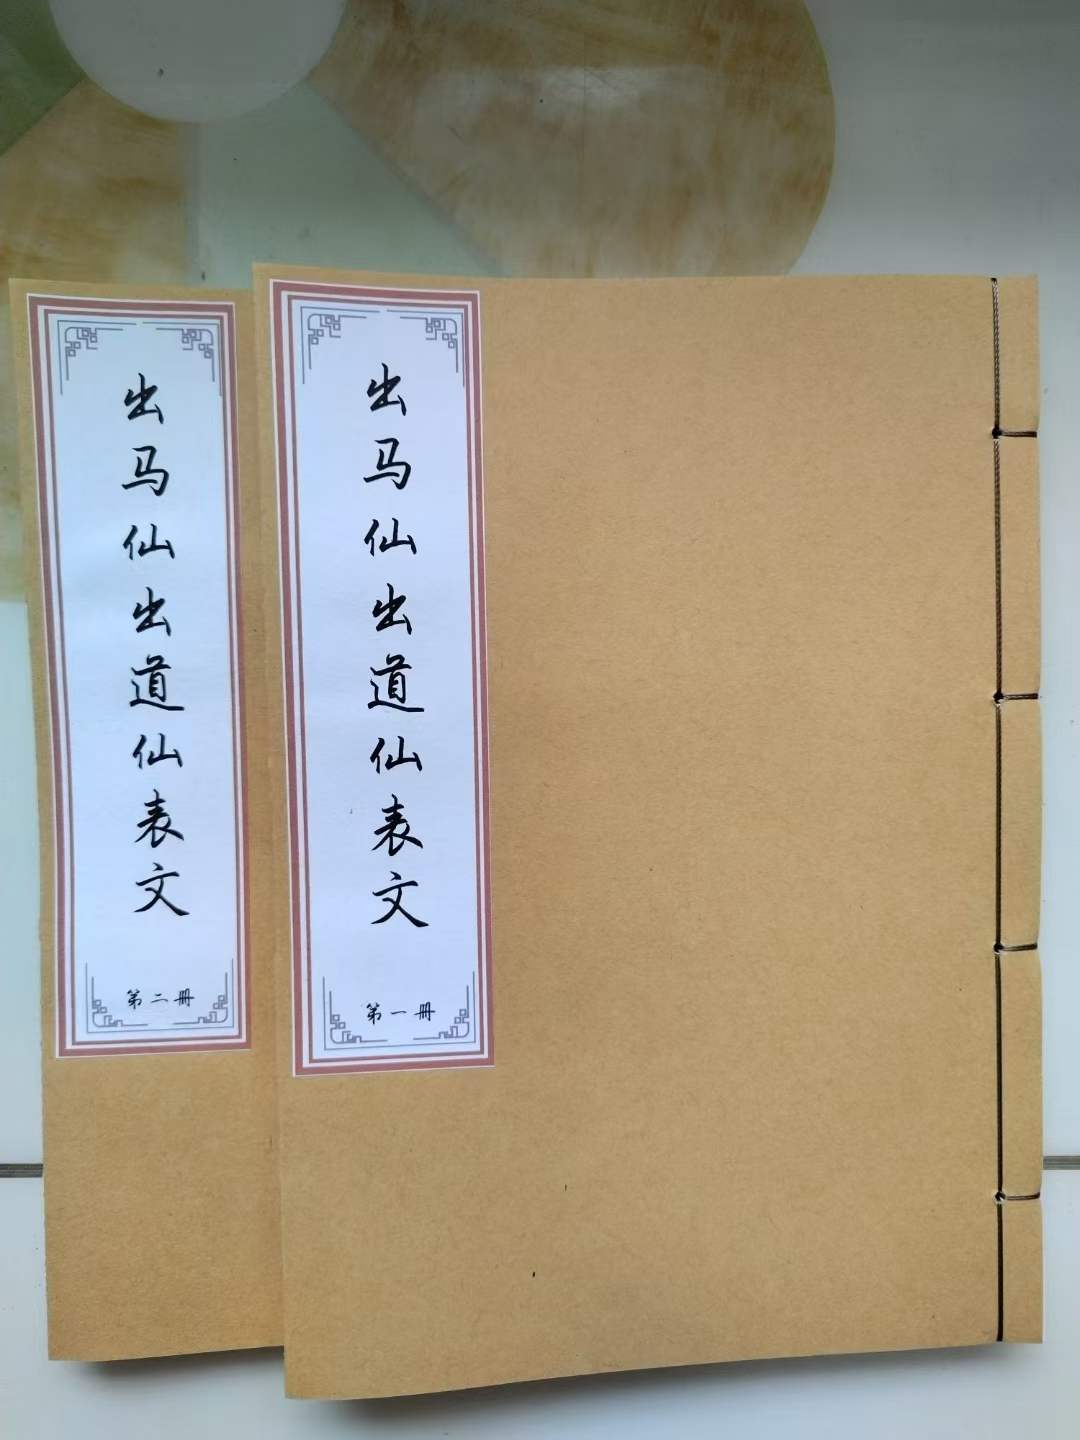 出马仙出道仙表文
第一册
出马仙出道仙表文
第二册